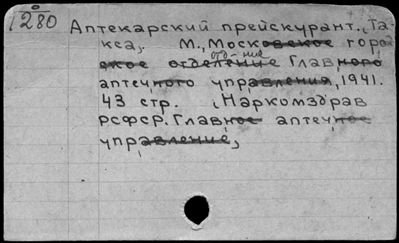 1280
Аптекарский прейскурант., Так
кса, М., Московское город
ское отделение отд-ние Главного
аптечного управления, 1941.
43 стр. (Наркомздрав
РСФСР. Главное аптечное
управление,